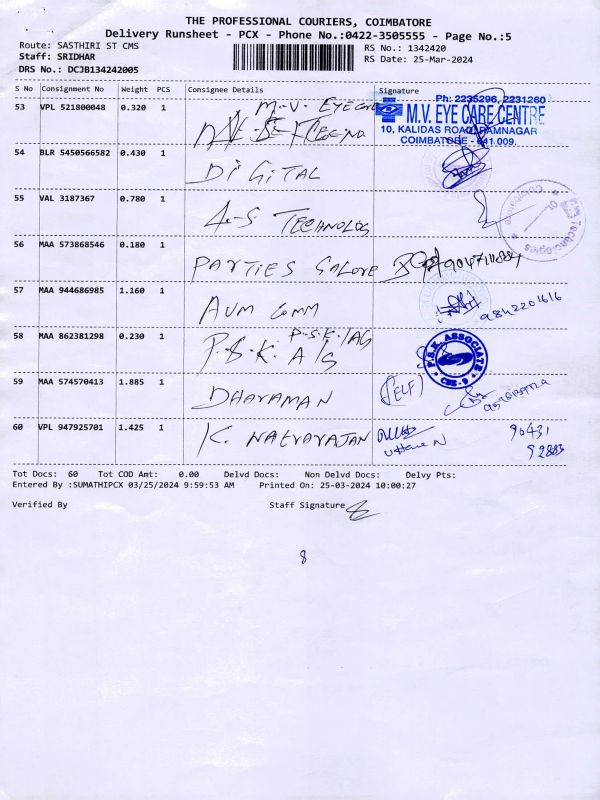 THE PROFESSIONAL COURIERS, COIMBATORE
Delivery Runsheet - PCX - Phone No.:0422-3505555 - Page No.:5
Route: SASTHIRI ST CMS
RS No.: 1342420
Staff: SRIDHAR
RS Date: 25-Mar-2024
DRS No.: DCJB134242005
S No Consignment No Weight PCS Consignee Details Signature
Ph: 2235296, 2231260
53 VPL 521800048 0.320 1 M.V. EYE CARE
M.V. EYE CARE CENTRE
10, KALIDAS ROAD, RAMNAGAR
COIMBATORE - 641 009.
54 BLR 5450566582 0.430 1 DIGITAL
55 VAL 3187367 0.780 1 A.S TECHNOLOG
Technologies
56 MAA 573868546 0.180 1 PARTIES GALORE
57 MAA 944686985 1.160 1 AVM COMM 9842201616
58 MAA 862381298 0.230 1 P.S.K. A/S
P.S.K. ASSOCIATE
CBE-9
59 MAA 574570413 1.885 1 DHAYAMAN (SELF)
60 VPL 947925701 1.425 1 K. NATRAYAJAN 90431
92883
Tot Docs: 60 Tot COD Amt: 0.00 Delvd Docs: Non Delvd Docs: Delvy Pts:
Entered By :SUMATHIPCX 03/25/2024 9:59:53 AM Printed On: 25-03-2024 10:00:27
Verified By Staff Signature
8